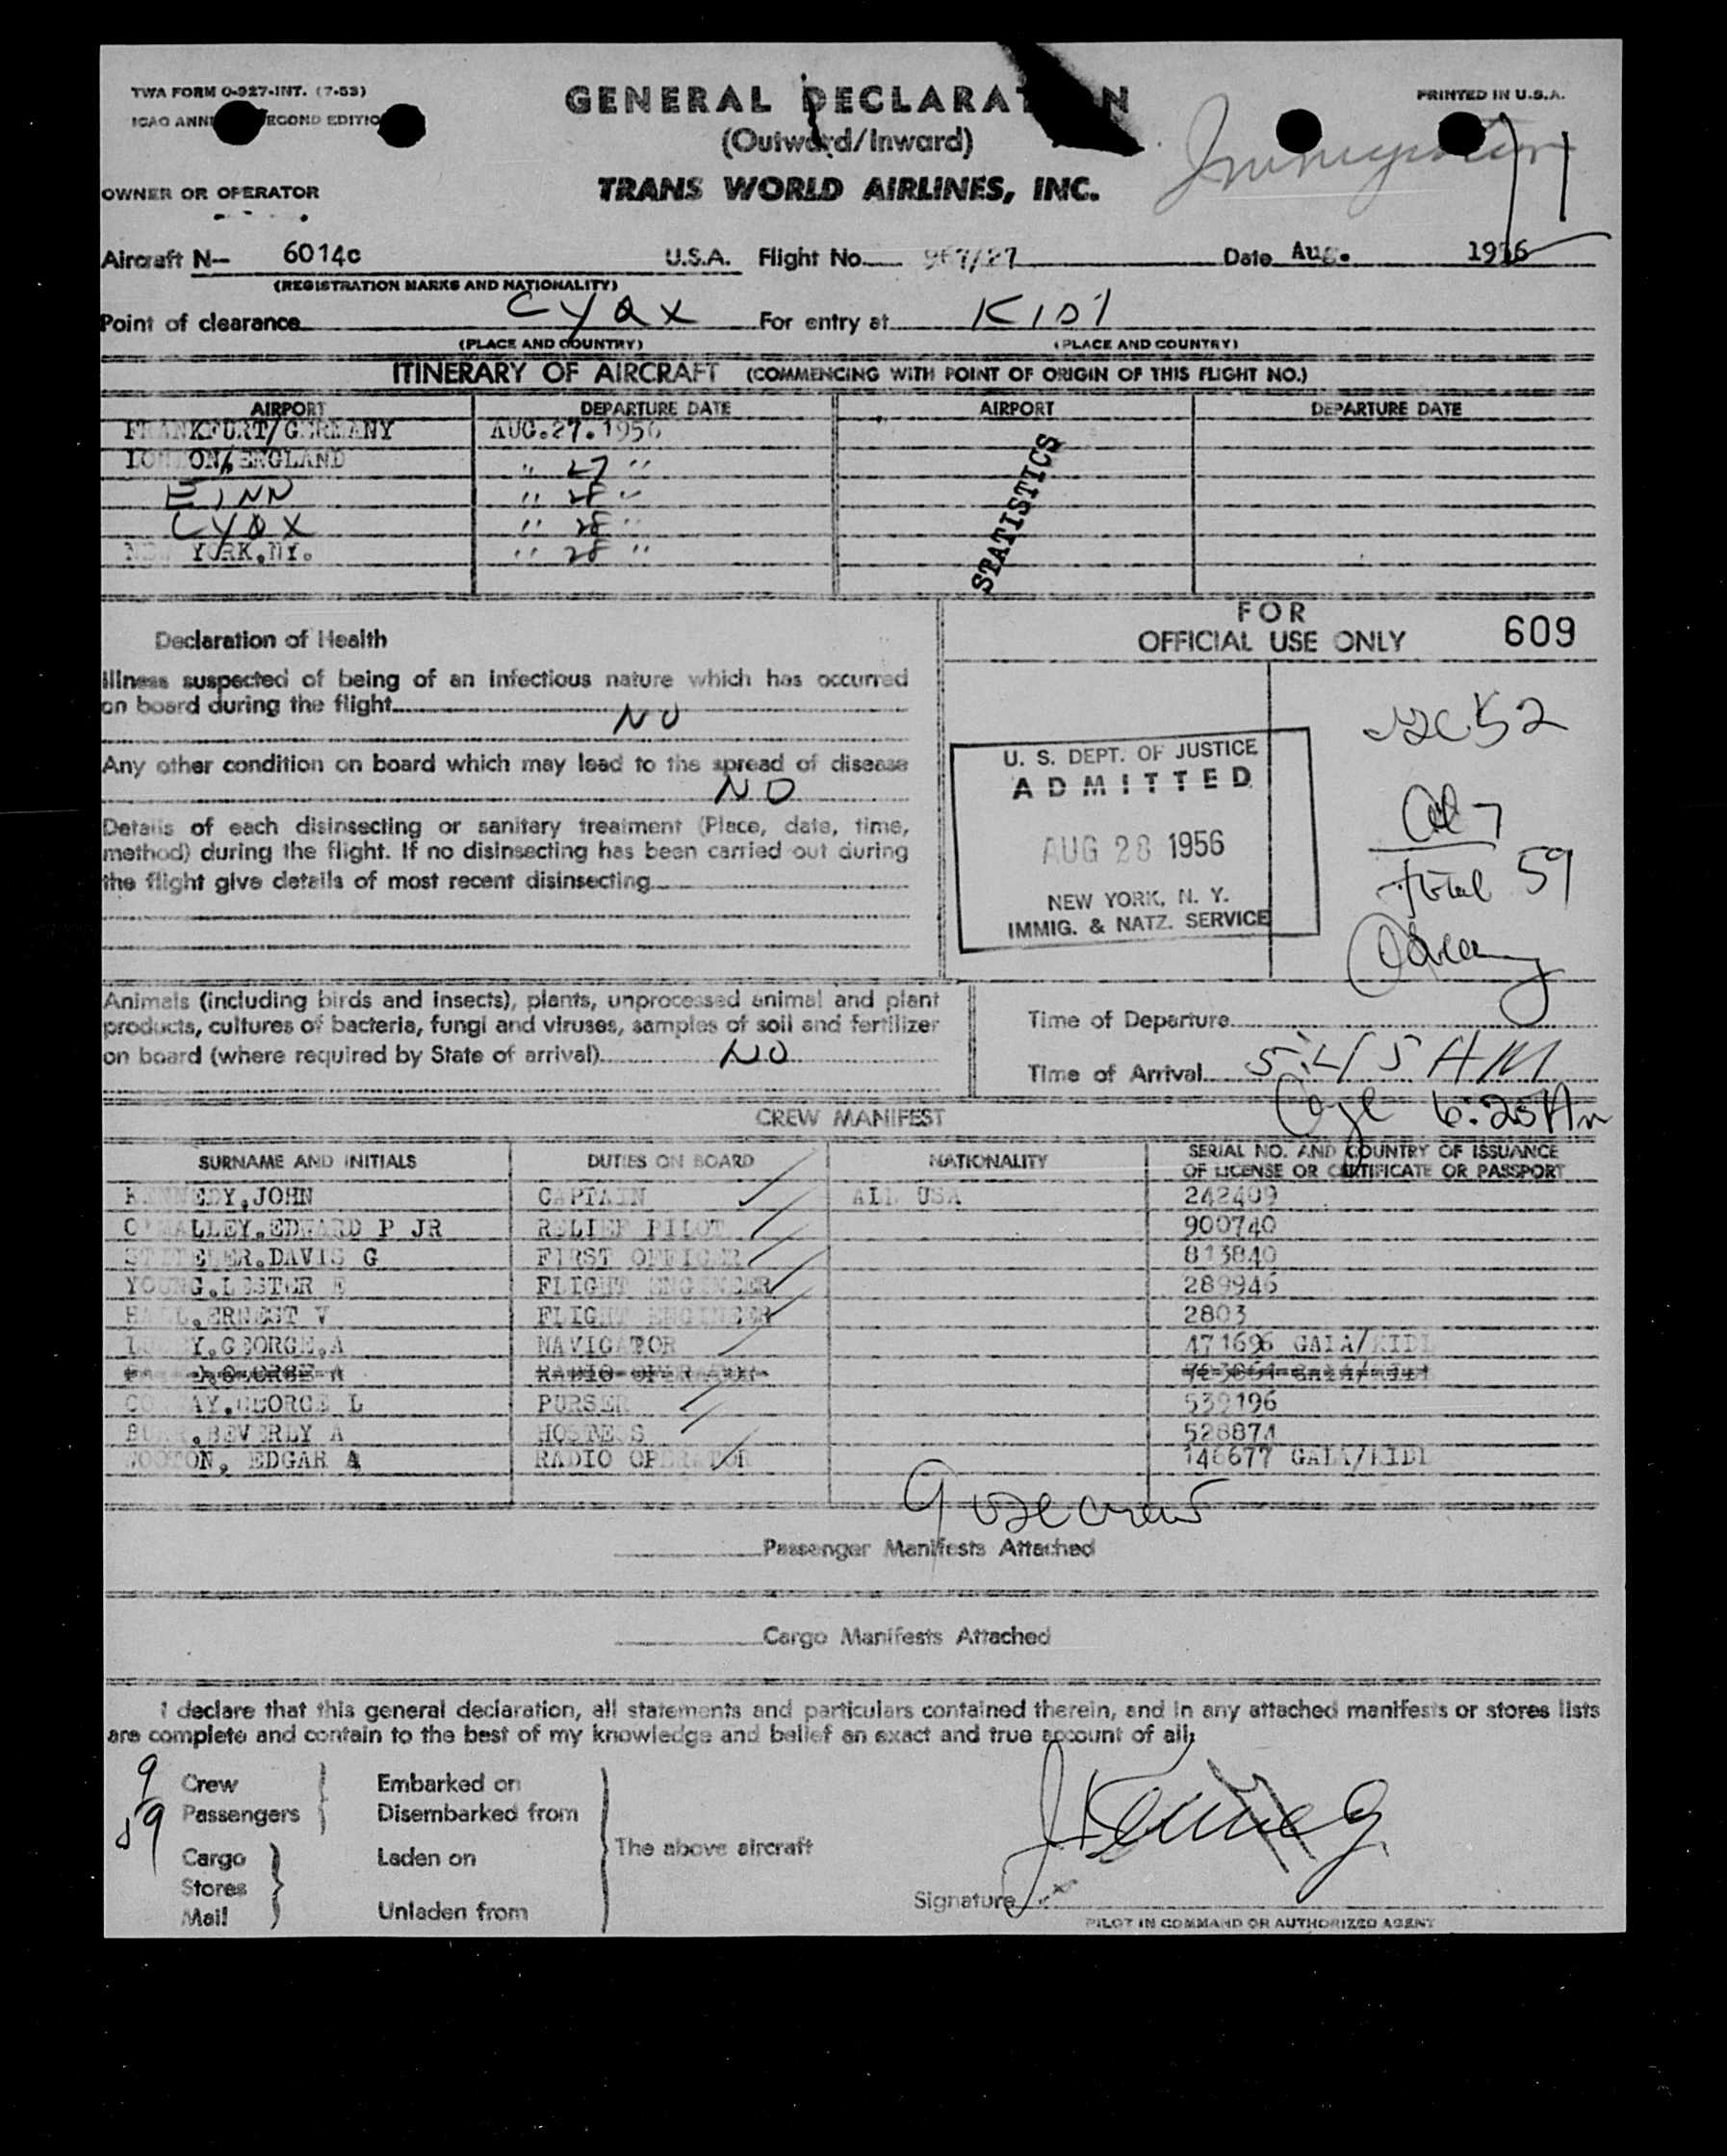 TWA FORM O-927-INT. (7-53)
PRINTED IN U.S.A.
ICAO SECOND EDITION
GENERAL DECLARATION
(Outward/Inward)
Immigration
OWNER OR OPERATOR
TRANS WORLD AIRLINES, INC.
Aircraft N- 6014c U.S.A. Flight No. 967/27 Date Aug. 1956
(REGISTRATION MARKS AND NATIONALITY)
Point of clearance CYQX For entry at KIDL
(PLACE AND COUNTRY) (PLACE AND COUNTRY)
ITINERARY OF AIRCRAFT (COMMENCING WITH POINT OF ORIGIN OF THIS FLIGHT NO.)
AIRPORT DEPARTURE DATE AIRPORT DEPARTURE DATE
FRANKFURT/GERMANY AUG.27.1956
LONDON, ENGLAND " 27 "
EINN " 28 "
CYQX " 28 "
NEW YORK.NY. " 28 "
STATISTICS
FOR
OFFICIAL USE ONLY 609
Declaration of Health
Illness suspected of being of an infectious nature which has occurred
on board during the flight NO
Any other condition on board which may lead to the spread of disease
NO
Details of each disinsecting or sanitary treatment (Place, date, time,
method) during the flight. If no disinsecting has been carried out during
the flight give details of most recent disinsecting
U. S. DEPT. OF JUSTICE
ADMITTED
AUG 28 1956
NEW YORK, N. Y.
IMMIG. & NATZ. SERVICE
52
7
total 59
Animals (including birds and insects), plants, unprocessed animal and plant
products, cultures of bacteria, fungi and viruses, samples of soil and fertilizer
on board (where required by State of arrival) NO
Time of Departure
Time of Arrival 5:45 AM
6:25 Am
CREW MANIFEST
SURNAME AND INITIALS DUTIES ON BOARD NATIONALITY SERIAL NO. AND COUNTRY OF ISSUANCE
OF LICENSE OR CERTIFICATE OR PASSPORT
KENNEDY,JOHN CAPTAIN ALL USA 242409
O'MALLEY.EDWARD P JR RELIEF PILOT 900740
DAVIS G FIRST OFFICER 813840
YOUNG.LESTER E FLIGHT ENGINEER 289946
ERNEST V FLIGHT ENGINEER 2803
GEORGE.A NAVIGATOR 471696 GAIA/KIDL
GEORGE A RADIO OPERATOR
GEORGE L PURSER 539196
BEVERLY A HOSTESS 528874
WOOTON, EDGAR A RADIO OPERATOR 146677 GAIA/KIDL
9 crew
Passenger Manifests Attached
Cargo Manifests Attached
I declare that this general declaration, all statements and particulars contained therein, and in any attached manifests or stores lists
are complete and contain to the best of my knowledge and belief an exact and true account of all:
9 Crew Embarked on
59 Passengers Disembarked from
The above aircraft
Cargo Laden on
Stores
Mail Unladen from
J Kennedy
Signature
PILOT IN COMMAND OR AUTHORIZED AGENT